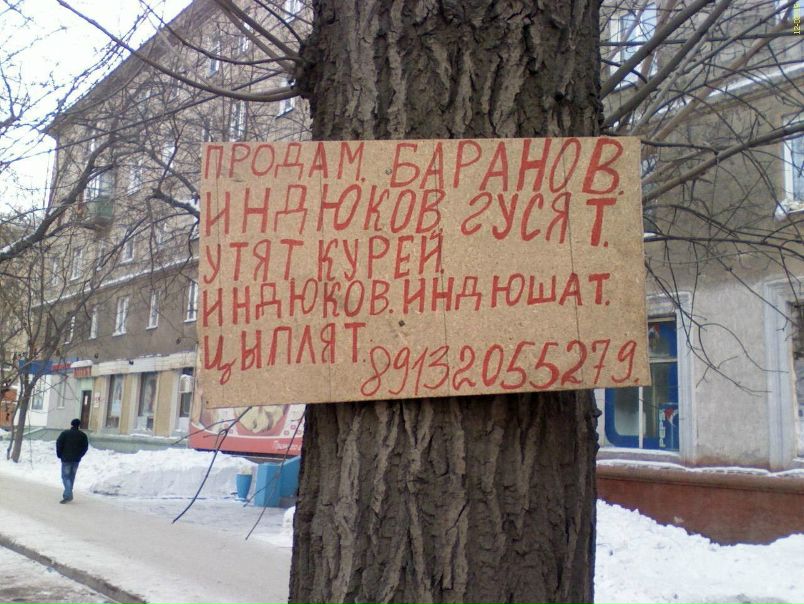 ПРОДАМ. БАРАНОВ.
ИНДЮКОВ. ГУСЯТ.
УТЯТ. КУРЕЙ.
ИНДЮКОВ. ИНДЮШАТ.
ЦЫПЛЯТ.
89132055279.